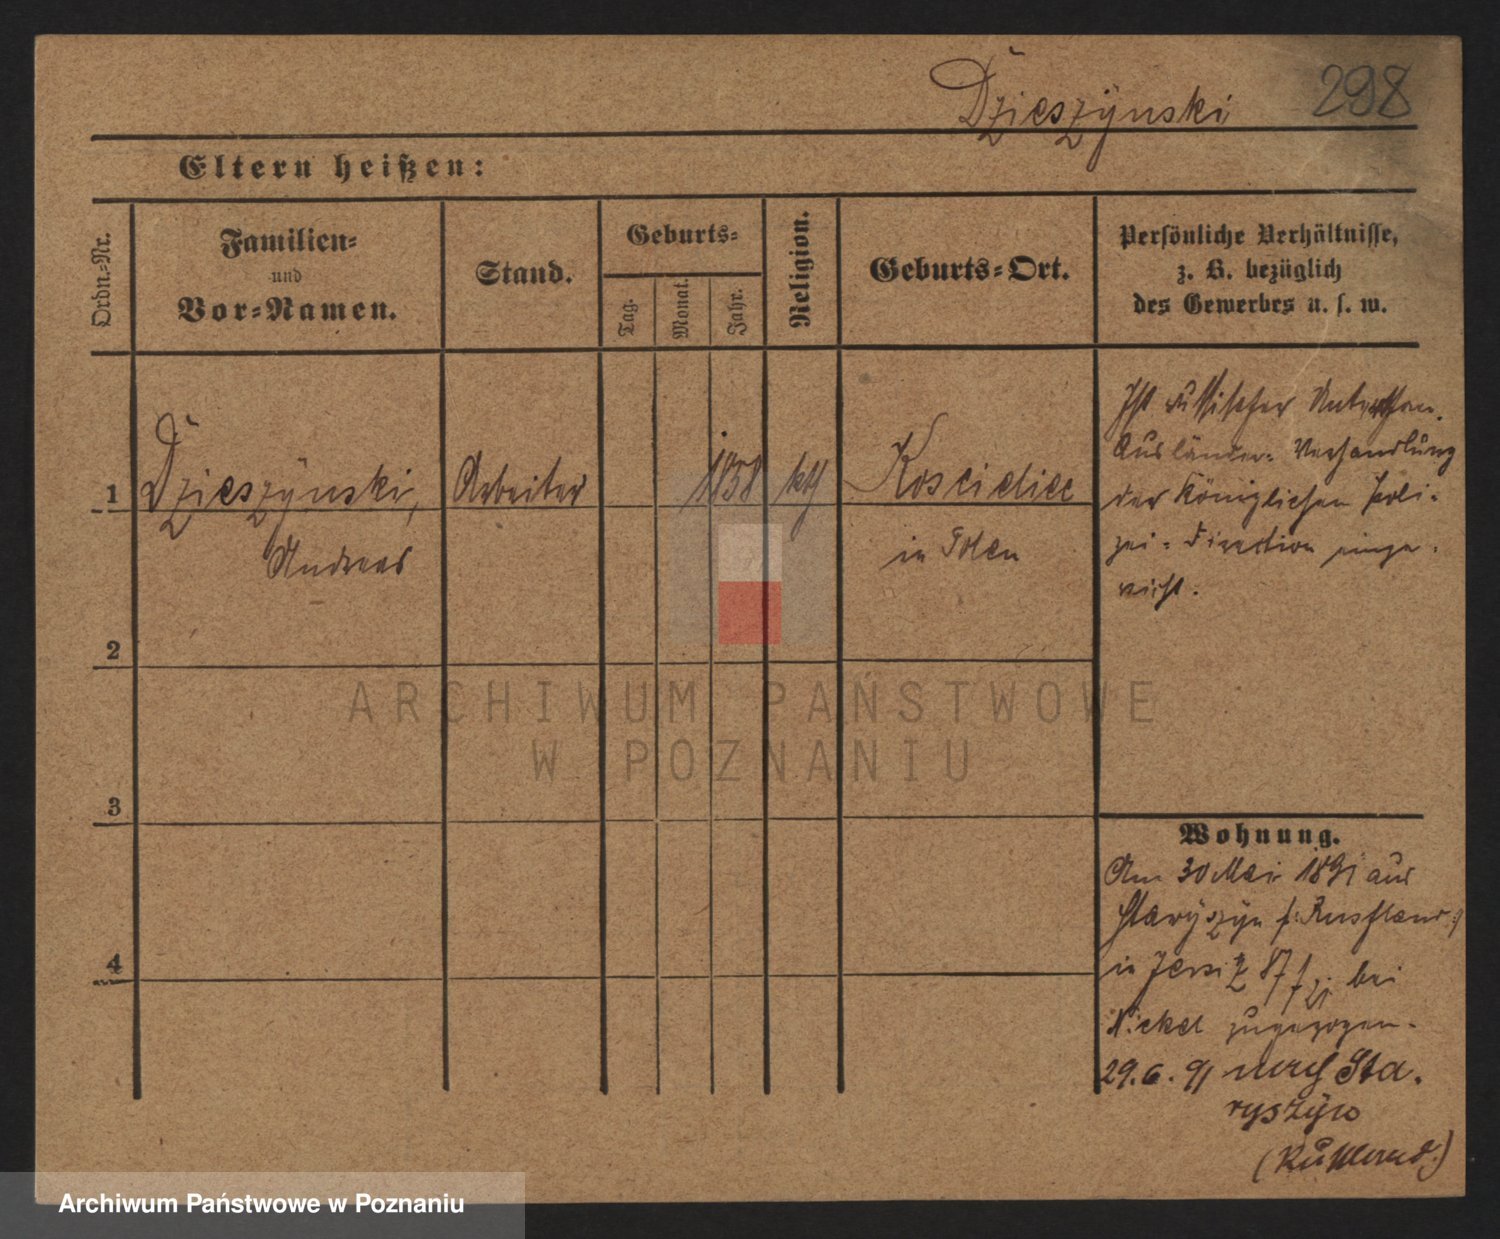 Dzieszÿnski 298
Eltern heißen:
Ordn.-Nr.
Familien-
und
Vor-Namen.
Stand.
Geburts-
Tag.
Monat.
Jahr.
Religion.
Geburts-Ort.
Persönliche Verhältnisse,
z. B. bezüglich
des Gewerbes u. s. w.
1 Dzieszÿnski, Arbeiter 1858 kth
Andreas in Polen
Ist russischer Unterthan.
Ausländer-Verhandlung
der Königlichen Poli-
zei-Direction einge-
reicht.
2
3
4
Wohnung.
Am 30 Mai 1891 aus
in Jersitz 87 bei
Nickel zugezogen.
29.6.91 nach Sta-
ryszÿn
(Russland.)
ARCHIWUM PAŃSTWOWE
W POZNANIU
Archiwum Państwowe w Poznaniu